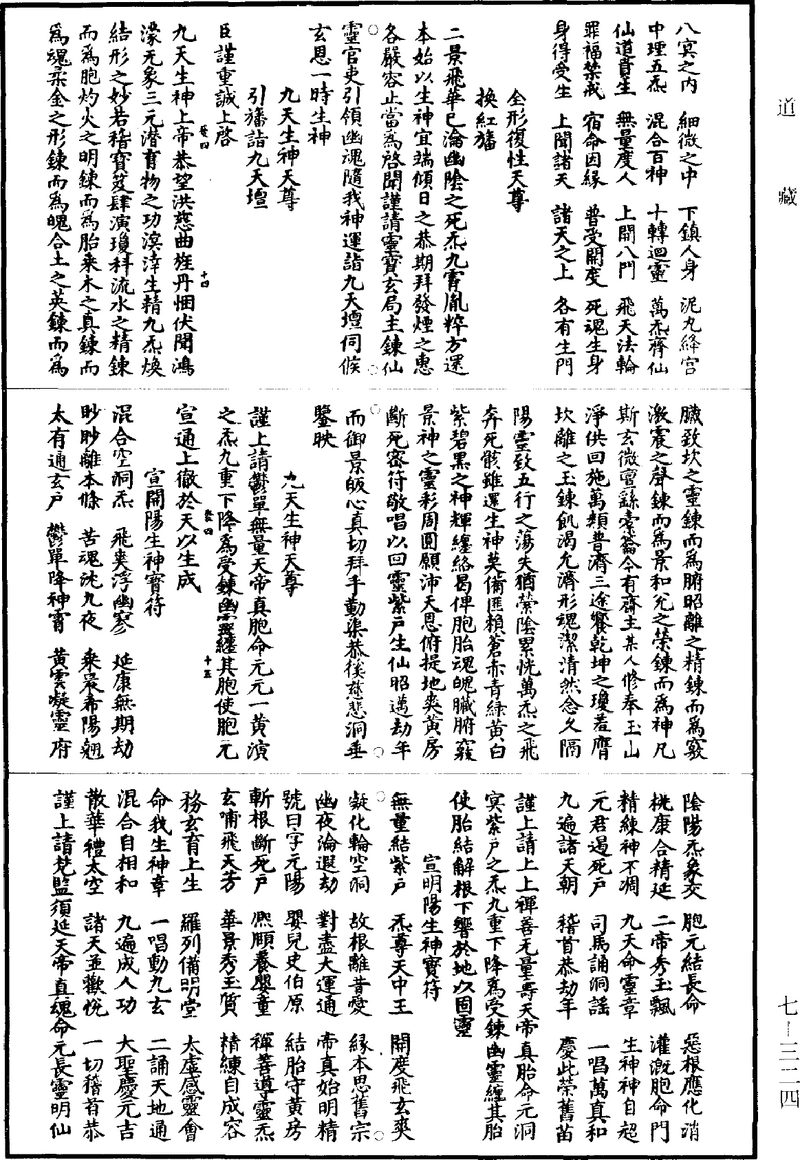 道藏
八冥之内　細微之中　下鎮人身　泥丸絳宮
中理五炁　混合百神　十轉迴靈　萬炁齊仙
仙道貴生　無量度人　上開八門　飛天法輪
罪福禁戒　宿命因緣　普受開度　死魂生身
身得受生　上聞諸天　諸天之上　各有生門
全形復性天尊
換紅旛
二景飛華已瀹幽陰之死炁九霄胤粹方還
本始以生神宜端傾日之恭期拜發煙之惠
各嚴容止當爲啓聞謹請靈寶玄局主鍊仙
靈官吏引領幽魂隨我神運詣九天壇伺候
玄恩一時生神
九天生神天尊
引旛詣九天壇
臣謹重誠上啓
九天生神上帝恭望洪慈曲旌丹悃伏聞鴻
濛元象三元潛育物之功溟涬生精九炁煥
結形之妙若稽寶笈肆演瓊科流水之精鍊
而爲胞灼火之明鍊而爲胎柔木之真鍊而
爲魂柔金之形鍊而爲魄合土之英鍊而爲
臟致坎之靈鍊而爲腑昭離之精鍊而爲竅
激震之聲鍊而爲景和兊之榮鍊而爲神凡
斯玄微亶繇橐籥今有齋主某人修奉玉山
淨供回施萬類普濟三途餐乾坤之瓊若膺
坎離之玉鍊飢渴允濟形魂潔清然念久隔
陽靈致五行之蕩失猶縈陰累恍萬炁之飛
奔死骸雖還生神莫備匪頼蒼赤青緑黄白
紫碧黑之神輝纏絡曷俾胞胎魂魄臟腑竅
景神之靈彩周圓願沛天恩俯提地爽黄房
斷死密符敬唱以回靈紫戸生仙昭邁劫年
而御景皈心真切拜手勤渠恭徯慈悲洞垂
鑒映
九天生神天尊
謹上請鬱單無量天帝真胞命元元一黄演
之炁九重下降爲受鍊幽靈纏其胞使胞元
宣通上徹於天以生成
宣開陽生神寶符
混合空洞炁　飛爽浮幽寥　延康無期劫
眇眇離本條　苦魂沈九夜　乘晨希陽翹
太有通玄戸　鬱單降神霄　黄雲凝靈府
陰陽炁象交　胞元結長命　惡根應化消
桄康合精延　二帝秀玉飄　灌溉胞命門
精練神不凋　九天命靈章　生神神自超
元君遏死戸　司馬誦洞謡　一唱萬真和
九遍諸天朝　稽首恭劫年　慶此榮舊苗
謹上請上上禪善无量壽天帝真胎命元洞
冥紫戸之炁九重下降爲受鍊幽靈纏其胎
使胎結解根下響於地以固靈
宣明陽生神寶符
無量結紫戸　炁尊天中王　開度飛玄爽
凝化輪空洞　故根離昔愛　緣本思舊宗
幽夜淪遐劫　對盡大運通　帝真始明精
號曰字元陽　嬰兒史伯原　結胎守黄房
斬根斷死戸　熈頤養嬰童　禪善導靈炁
玄哺飛天芳　華景秀玉質　精練自成容
務玄育上生　羅列備明堂　太虛感靈會
命我生神章　一唱動九玄　二誦天地通
混合自相和　九遍成人功　大聖慶元吉
散華禮太空　諸天並歡悅　一切稽首恭
謹上請梵監須延天帝真魂命元長靈明仙
七—三二四